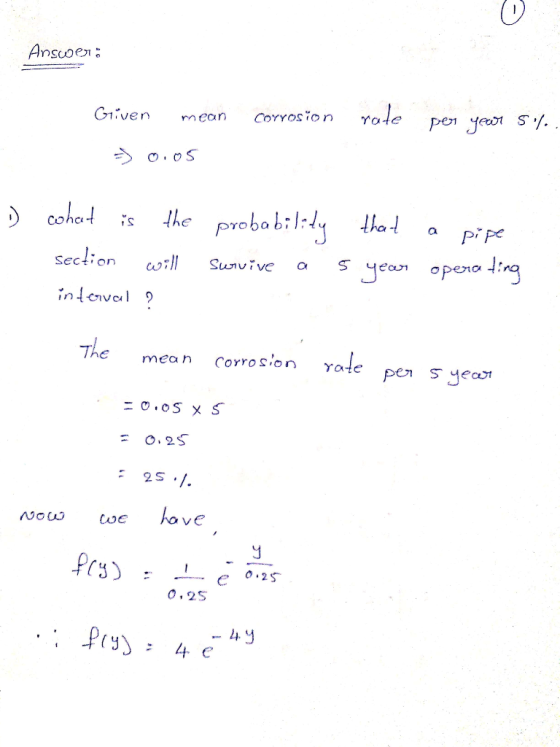 1
Answer:
Given mean corrosion rate per year 5%.
⇒ 0.05
1) what is the probability that a pipe
section will survive a 5 year operating
interval ?
The mean corrosion rate per 5 year
= 0.05 × 5
= 0.25
= 25 %.
Now we have,
f(y) = 1/0.25 e^(-y/0.25)
∴ f(y) = 4 e^(-4y)